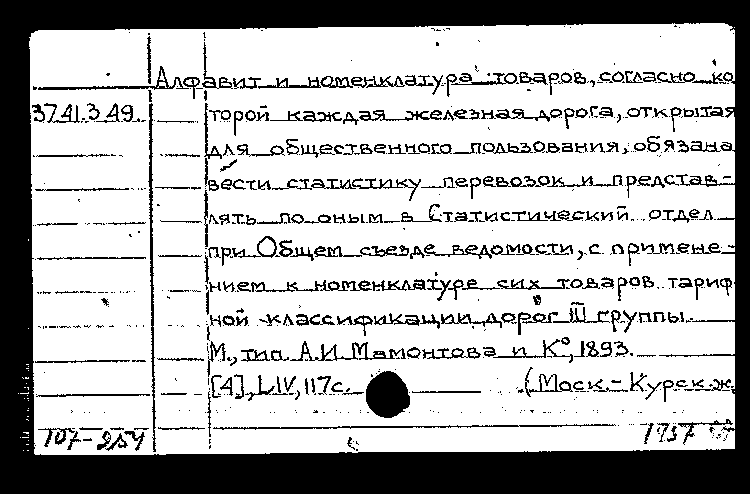 Алфавит и номенклатура товаров, согласно ко
37.41.3.49. торой каждая железная дорога, открытая
для общественного пользования, обязана
вести статистику перевозок и представ-
лять по оным в Статистический отдел
при Общем съезде ведомости, с примене-
нием к номенклатуре сих товаров тариф
ной классификации дорог III группы.
М., тип. А.И. Мамонтова и К°, 1893.
[4], LIV, 117с. (Моск.-Курск.ж.
107-254 1957